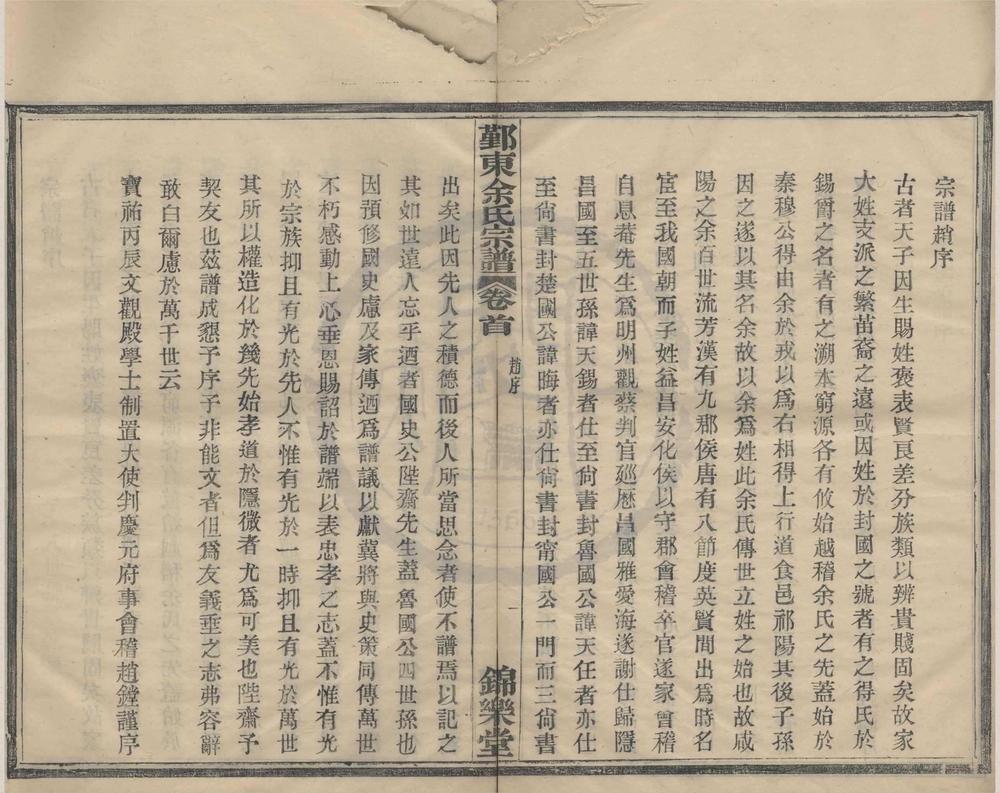 宗譜趙序
古者天子因生賜姓褒表賢良差分族類以辨貴賤固矣故家
大姓支派之繁苗裔之遠或因姓於封國之號者有之得氏於
錫爵之名者有之溯本窮源各有攸始越稽余氏之先蓋始於
秦穆公得由余於戎以爲右相得上行道食邑祁陽其後子孫
因之遂以其名余故以余爲姓此余氏傳世立姓之始也故咸
陽之余百世流芳漢有九郡侯唐有八節度英賢間出爲時名
宦至我國朝而子姓益昌安化侯以守郡會稽卒官遂家會稽
自息菴先生爲明州觀蔡判官廵歷昌國雅愛海遂謝仕歸隱
昌國至五世孫諱天錫者仕至尙書封魯國公諱天任者亦仕
至尙書封楚國公諱晦者亦仕尙書封甯國公一門而三尙書
鄞東余氏宗譜 卷首 趙序 一 錦樂堂
出矣此因先人之積德而後人所當思念者使不譜焉以記之
其如世遠人忘乎迺者國史公陛齋先生蓋魯國公四世孫也
因預修國史慮及家傳迺爲譜議以獻冀將與史策同傳萬世
不朽感動上心垂恩賜詔於譜端以表忠孝之志蓋不惟有光
於宗族抑且有光於先人不惟有光於一時抑且有光於萬世
其所以權造化於幾先始孝道於隱微者尤爲可美也陛齋予
契友也茲譜成懇予序予非能文者但爲友義垂之志弗容辭
敢白爾慮於萬千世云
寶祐丙辰文觀殿學士制置大使判慶元府事會稽趙鏜謹序